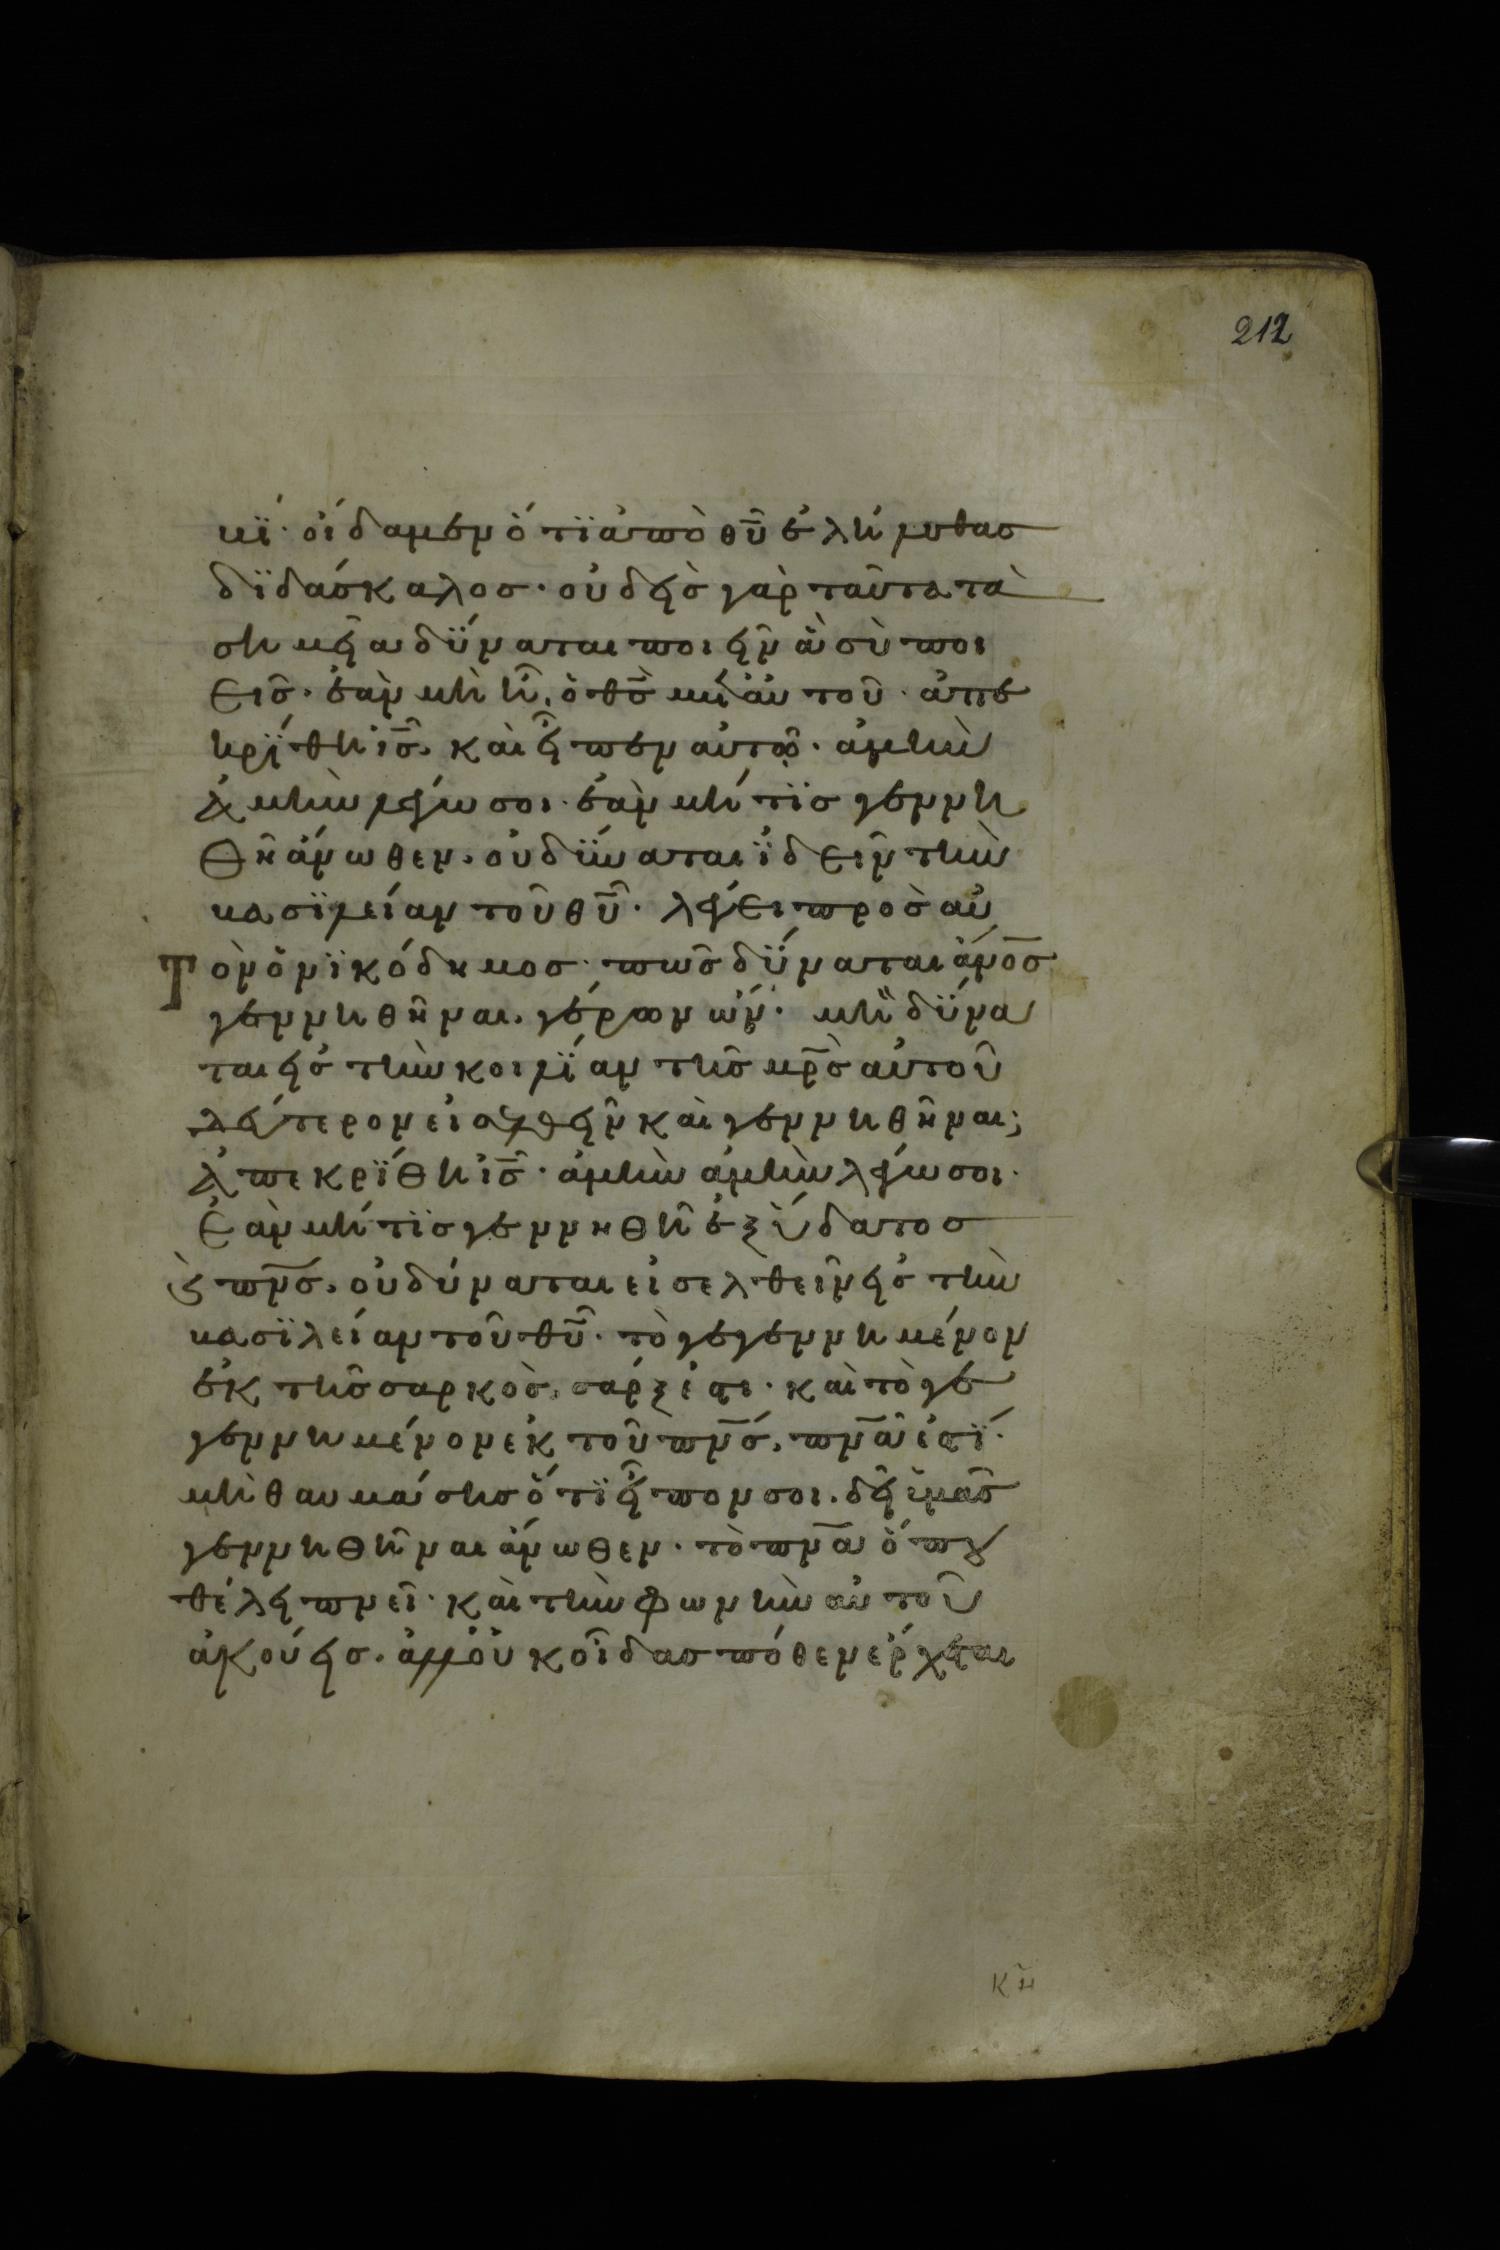 212
βϊ· οἴδαμεν ὅτϊ ἀπὸ θ̅υ̅ ἐλήλυθας
δϊδάσκαλος· οὐδεὶς γὰρ ταῦτα τὰ
σημεῖα δύναται ποιεῖν ἃ σὺ ποι
εῖς· ἐὰν μὴ ἦ, ὁ θ̅ς̅ μετ' αὐτοῦ· ἀπε
κρίθη ἰ̅ς̅, καὶ εἶπεν αὐτῷ· ἀμὴν
ἀμὴν λέγω σοι· ἐὰν μή τϊς γεννη
θῆ ἄνωθεν, οὐ δύναται ἰδεῖν τὴν
βασϊλείαν τοῦ θ̅υ̅· λέγει πρὸς αὐ
τὸν ὁ νϊκόδημος· πῶς δύναται ἄν̅ο̅ς̅
γεννηθῆναι, γέρων ὤν· μὴ δύνα
ται εἰς τὴν κοιλίαν τῆς μ̅ρ̅ς̅ αὐτοῦ
δεύτερον εἰσελθεῖν καὶ γεννηθῆναι;
ἀπεκρίθη ἰ̅ς̅· ἀμὴν ἀμὴν λέγω σοι·
ἐὰν μή τϊς γεννηθῆ ἐξ ὕδατος
ϗ π̅ν̅ς̅, οὐ δύναται εἰσελθεῖν εἰς τὴν
βασϊλείαν τοῦ θ̅υ̅· τὸ γεγεννημένον
ἐκ τῆς σαρκὸς, σάρξ ἐστι· καὶ τὸ γε
γεννημένον ἐκ τοῦ π̅ν̅ς̅, π̅ν̅α̅ ἐστϊ·
μὴ θαυμάσης ὅτϊ εἶπον σοι, δεῖ ὑμᾶς
γεννηθῆναι ἄνωθεν· τὸ π̅ν̅α̅ ὅπου
θέλει πνεῖ· καὶ τὴν φωνὴν αὐτοῦ
ἀκούεις, ἀλλ' οὐκ οἶδας πόθεν ἔρχεται
κη